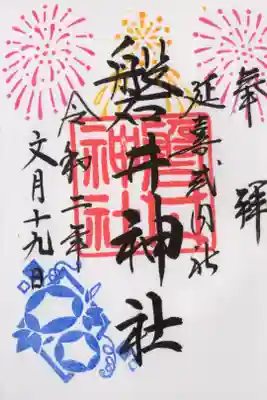 奉拝
延喜式内社
磐井神社
令和二年
文月十九日
磐井
神社